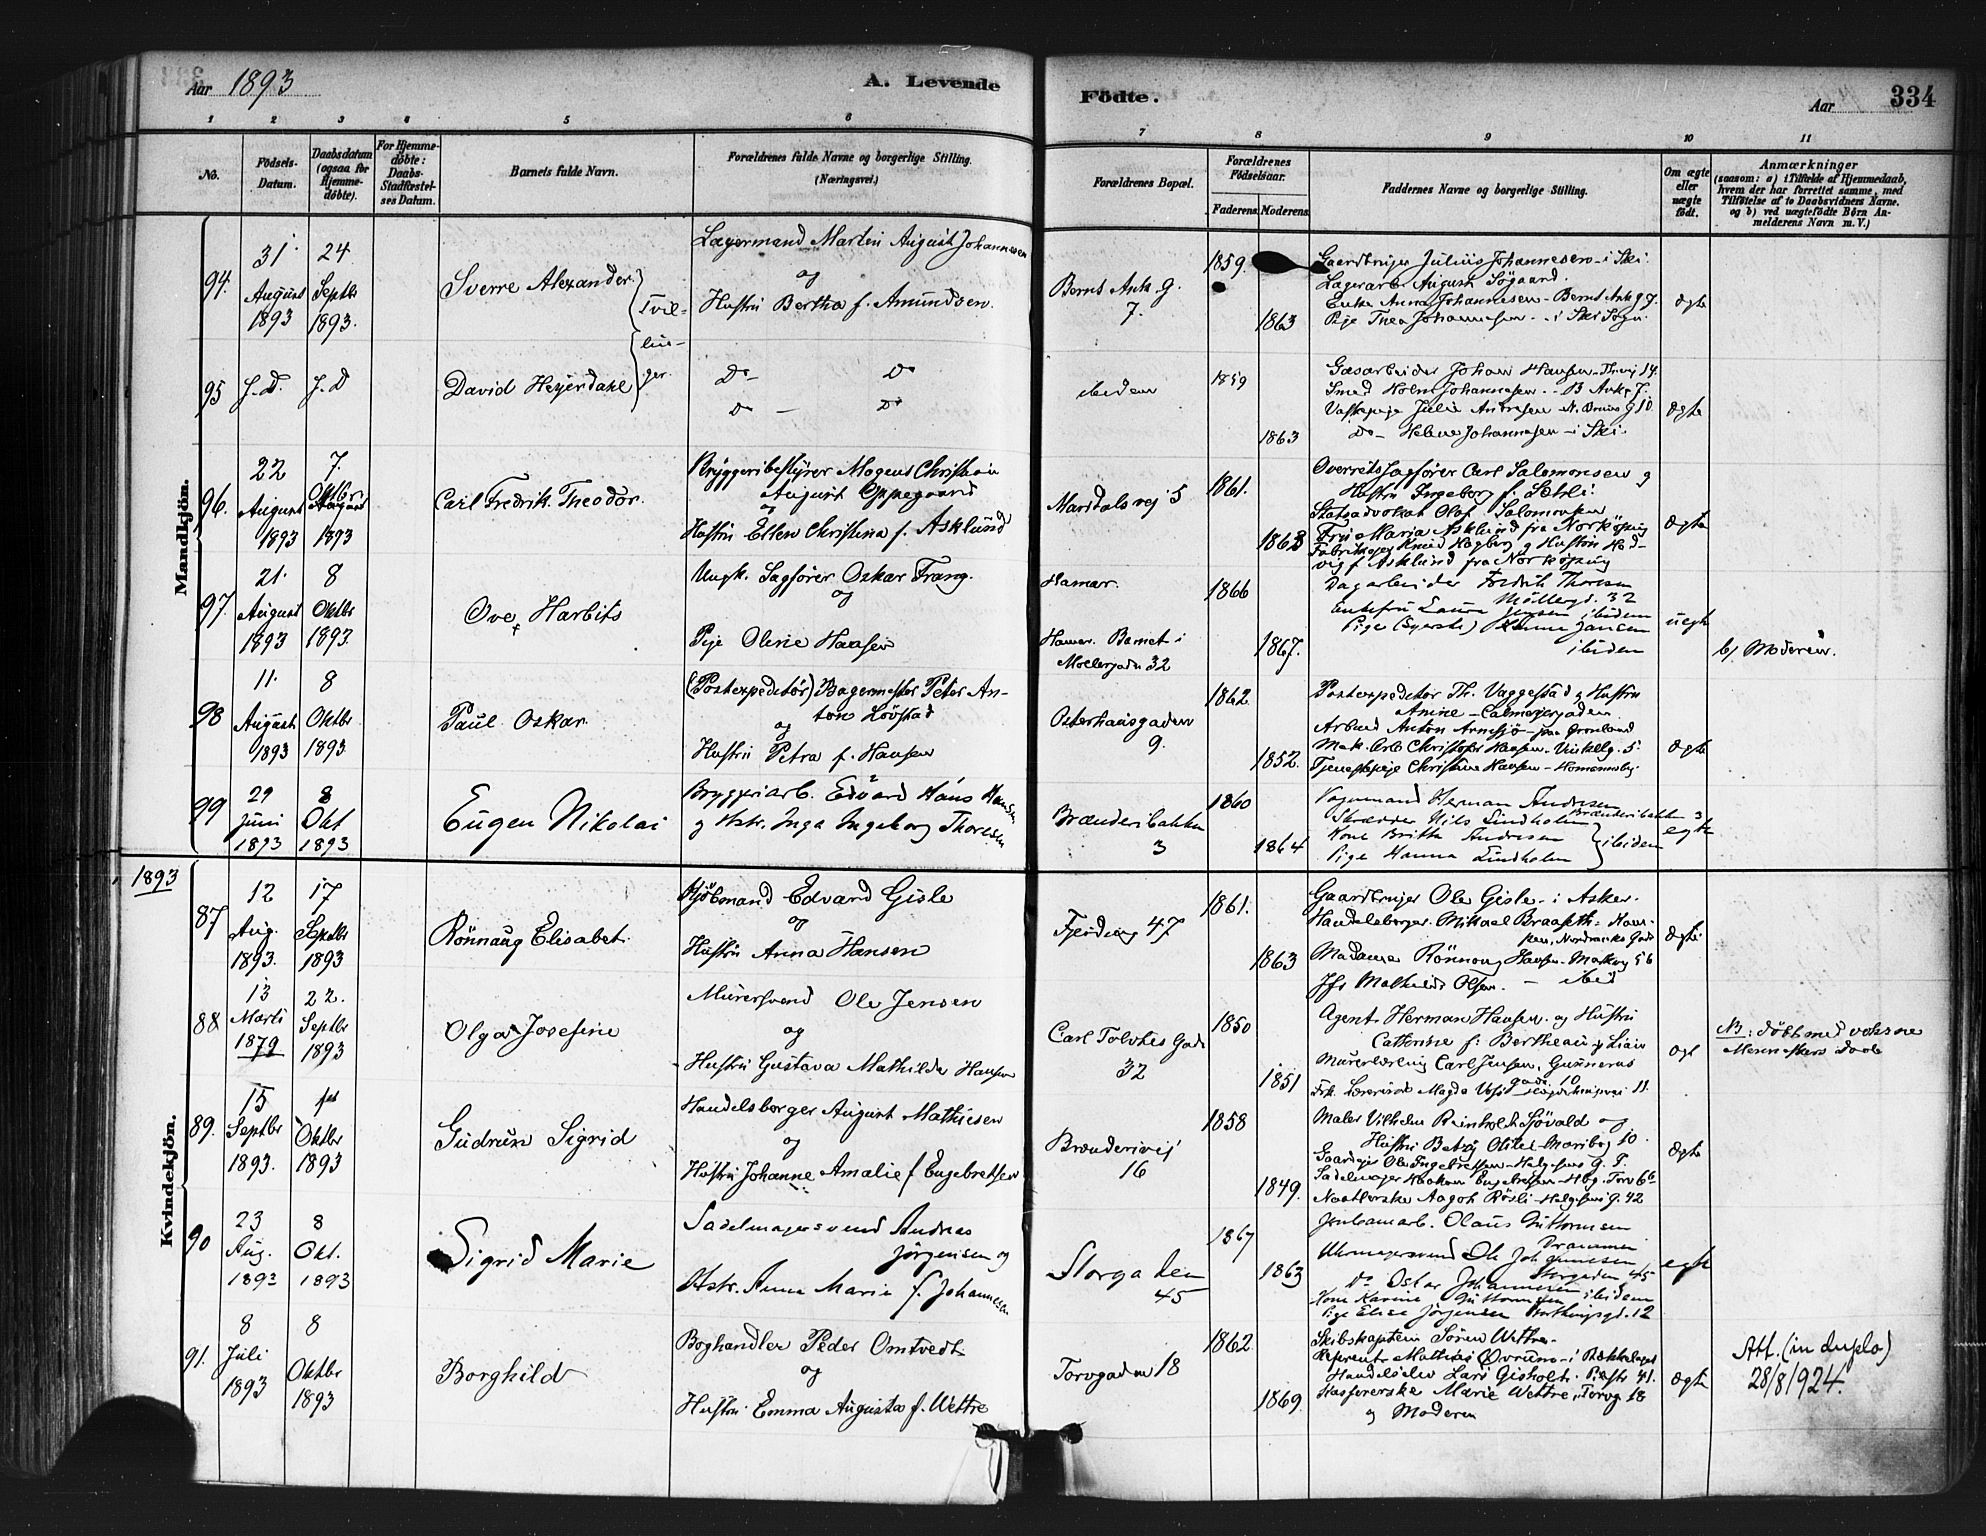 Aar 1893
A. Levende
Födte.
Aar
334
1 2 3 4 5 6 7 8 9 10 11
No.
Födsels-
Datum.
Daabsdatum
(ogsaa for
Hjemme-
döbte).
For Hjemme-
döbte:
Daabs-
Stadfæstel-
ses Datum.
Barnets fulde Navn.
Forældrenes fulde Navne og borgerlige Stilling.
(Næringsvei.)
Forældrenes Bopæl.
Forældrenes
Födselsaar.
Faderens. Moderens.
Faddernes Navne og borgerlige Stilling.
Om ægte
eller
uægte
födt.
Anmærkninger
(saasom: a) i Tilfælde af Hjemmedaab,
hvem der har forrettet samme, med
Tilföielse af to Daabsvidners Navne.
og b) ved uægtefödte Börn An-
melderens Navn m. V.)
Mandkjön.
94.
31.
August
1893
24
Septbr
1893.
Sverre Alexander.
Tvil-
Lagermand Martin August Johannesen
og
Hustru Bertha f. Amundsen.
Bernt Ank. g.
7.
1859.
1863
Gaardbruger Julius Johannesen - i Ski.
Lagerarb. August Søgaard.
Enke Anna Johannesen - Bernt Ank g 7.
Pige Thea Johannesen - i Ski Sogn.
ægte
95
s. D.
s. D
David Heyerdahl
lin-
ger.
Do Do
Do - Do
ibidem
1859
1863
Gasarbeider Johan Hansen
Smed Holm Johannesen - B Ank g 7.
Julie Andresen
Do - Helene Johannesen - i Ski.
ægte
96.
22
August
1893
7.
Oktbr
August
1893
Carl Fredrik Theodor.
Bryggeribestyrer Mogens Christian
August Oppegaard
og
Hustru Ellen Christina f. Asklund
Maridalsvej 5
1861.
1863
Overretssagfører Carl Salomonsen og
Hustru Ingeborg f.
Statsadvokat Olaf Salomonsen
Fru Maria Asklund fra Norköping
Knud Hagberg og Hustru Hed-
vig f Asklund fra Norköping
ægte
97.
21.
August
1893
8
Oktbr
1893.
Ove Harbits
Ungk. Sagfører Oskar Frang.
og
Pige Oline Hansen
Hamar.
Hamar. Barnet i
Møllergaden 32
1866
1867.
Dagarbeider Fredrik Thoresen
Møllergd. 32
Enkefru Laura Jensen ibidem
Pige (Syerske) Hanna Jansen
ibidem
uegte
b/ Moderen.
98
11.
August
1893
8
Oktbr
1893.
Paul Oskar.
(Postexpeditør) Bagermester Peter An-
ton Løvstad
og
Hustru Petra f. Hansen
Osterhausgaden
9.
1862
1852.
Postexpeditør Th. Vaggestad og Hustru
Anine - Calmeyergaden
Anton Arnesjø - paa Grønland
Mek. Arb Christofer Hansen
Tjenestepige Christine Hansen - Homansby.
ægte
99
29
Juni
1893
8
Okt
1893
Eugen Nikolai
Bryggeriarb. Edvard Hans Hansen
og Hstr. Inga Ingeborg Thoresen
Brænderibakken
3
1860
1864
Vognmand Herman Andresen
Brænderibakken 3
Skrædder Nils Lindholm
Kone Britta Andresen
Pige Hanna Lindholm
ibidem
egte
1893
Kvindekjön.
87
12
Aug.
1893.
17
Septbr
1893
Rönnaug Elisabet.
Kjøbmand Edvard Gisle
og
Hustru Anna Hansen
Fjerding 47
1861.
1863
Gaardbruger Ole Gisle - i Asker.
Handelsborger Mikael Braaseth
Madame Rönnoug Hansen
Jfr Mathilde Olsen. - ibid
ægte
88
13
Marts
1879
22.
Septbr
1893
Olga Josefine
Murersvend Ole Jensen
og
Hustru Gustava Mathilde Hansen
Carl Tolvtes Gade
32
1850
1851
Agent Herman Hansen og Hustru
Cathrine f: Bertheau
Murerlærling Carl Jensen, Gunnerus
gade. 10
ægt
NB: døbt med voksne
Menneskers Daab
89.
15
Septbr
1893.
1st
Oktbr
1893
Gudrun Sigrid
Handelsborger August Mathiesen
og
Hustru Johanne Amalie f Engebretsen
Brænderivej
16
1858
1849.
Maler Vilhelm Reinholt Sjøvald og
Hustru Betzy Otilie - Maribog 10.
Gaardejer Ole Engebretsen - Helgesens G. 7.
Sadelmager Haakon Engebretsen
Aagot Røsli - Helgesens G. 42
ægte
90
23
Aug.
1893
8
Okt.
1893
Sigrid Marie
Sadelmagersvend Andreas
Jørgensen og
Hstr. Anna Marie f. Johannesen
Storgaden
45
1867
1863
Jernbanearb. Olaus Guttormsen
Drammen
Uhrmagersvend Ole Johannesen
Storgaden 45
Do Oskar Johannesen
Kone Karine Guttormsen ibidem
Pige Elise Jørgensen Storthingsgd. 12
egte
91.
8
Juli
1893
8
Oktbr
1893
Borghild
Boghandler Peder Omtvedt
og
Hustru Emma Augusta f. Wettre
Torvgaden 18
1862
1869
Skibskaptein Søren Wettre.
Referent Mathias Øvrum
Handelselev Lars Gisholt
Kassererske Marie Wettre, Torvg 18
og Moderen
ægte
Att. (in duplo)
28/8 1924.